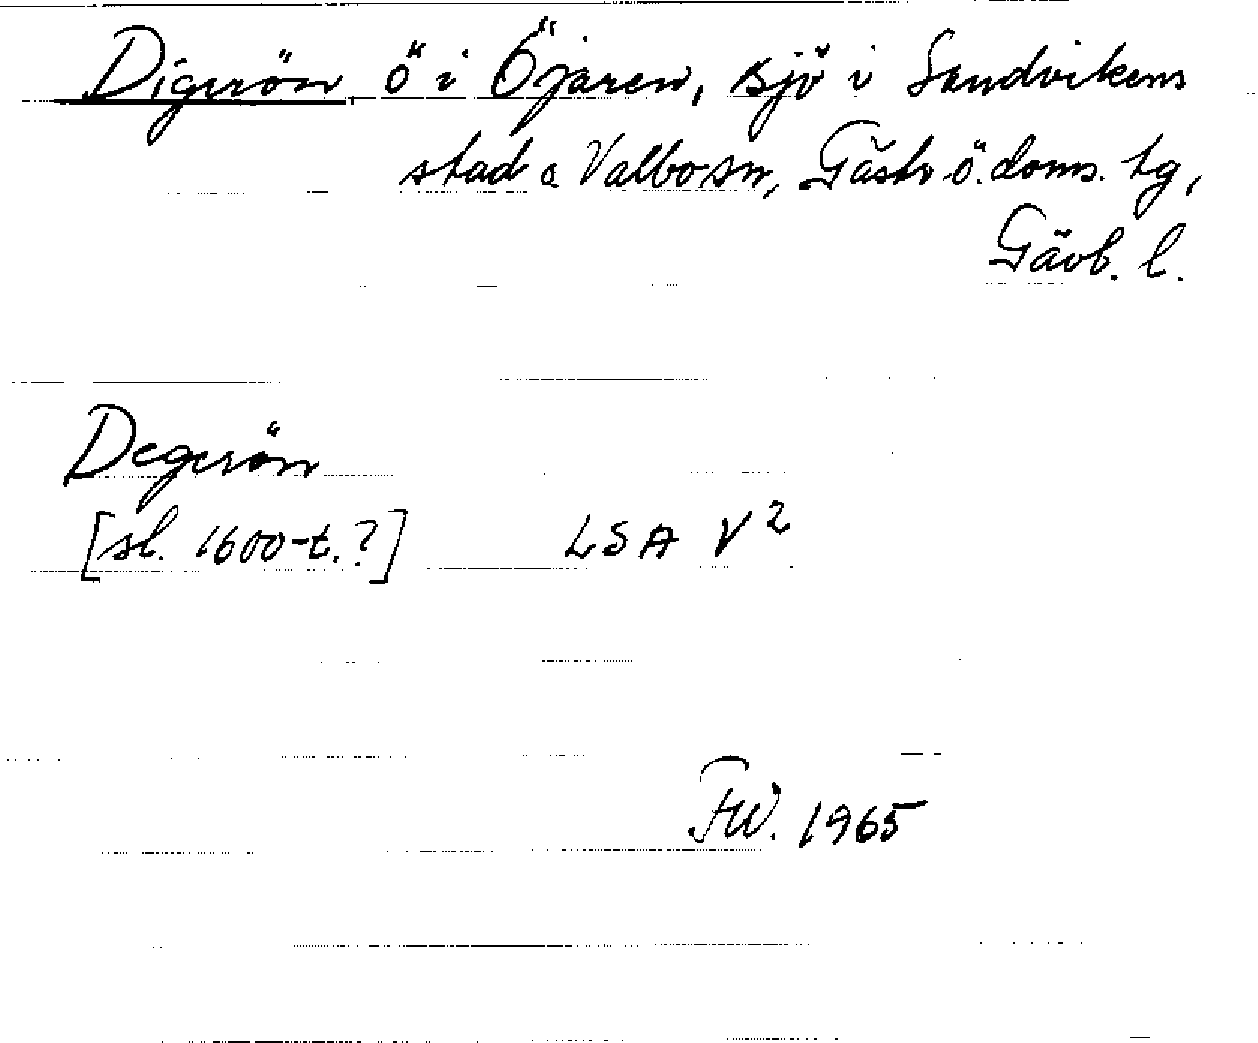 Digerön, ö i Öjaren, sjö i Sandvikens
stad o Valbo sn, Gästr ö. doms. tg,
Gävb. l.
Degerön
[sl. 1600-t.?] LSA V2
FW. 1965